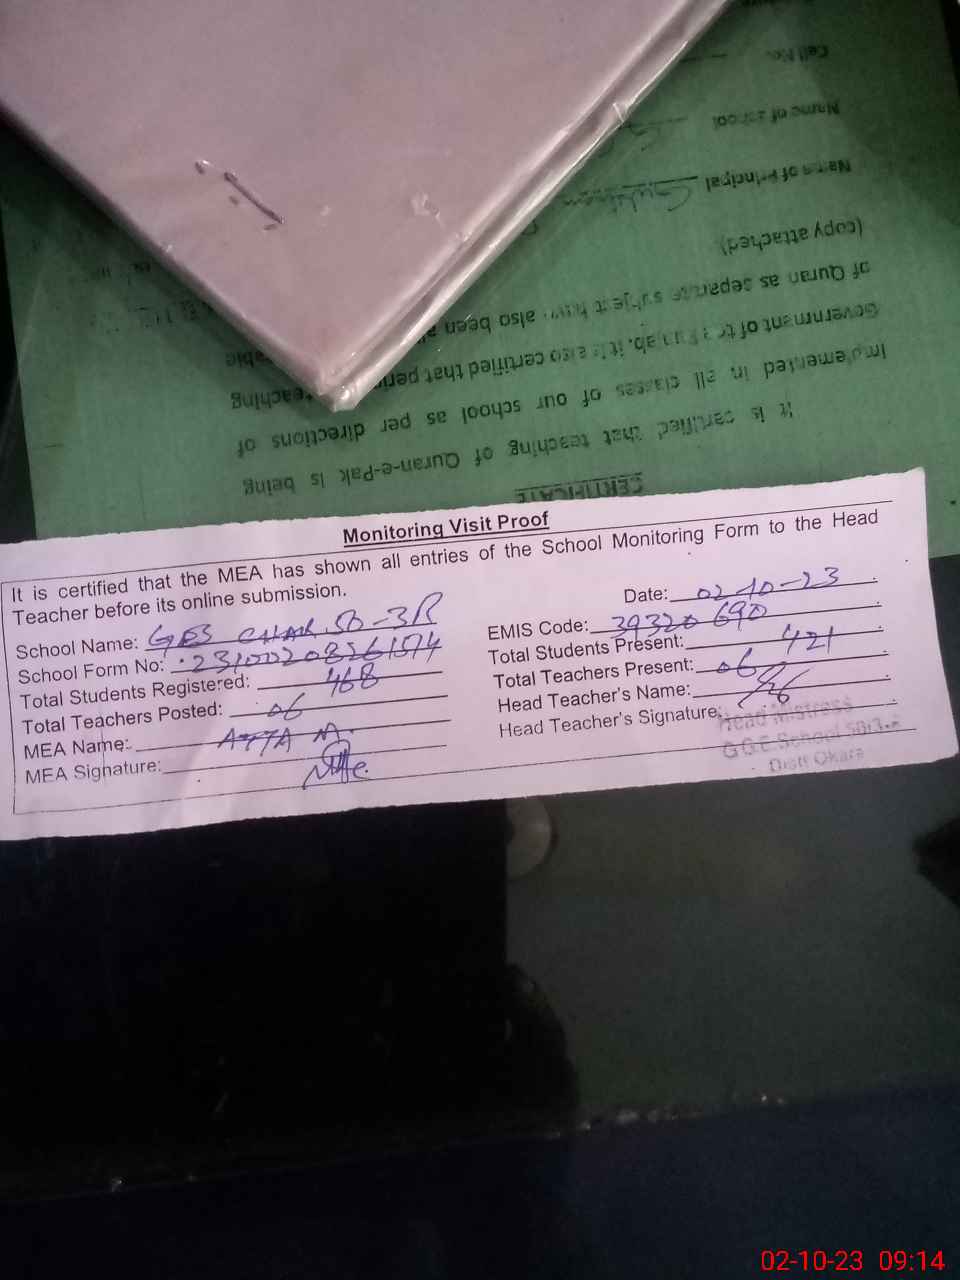 Cell No.
Name of School
Name of Principal
(copy attached)
of Quran as separate subject have also been
Government of the Punjab. It is also certified that period teaching
Implemented in all classes of our school as per directions of
It is certified that teaching of Quran-e-Pak is being
CERTIFICATE
Monitoring Visit Proof
It is certified that the MEA has shown all entries of the School Monitoring Form to the Head
Teacher before its online submission.
Date: 02-10-23
School Name: GES CHAK 50-3R
EMIS Code: 39320690
School Form No:
Total Students Present: 421
Total Students Registered: 468
Total Teachers Present: 06
Total Teachers Posted: 06
Head Teacher's Name:
MEA Name: ATTA M.
Head Teacher's Signature:
MEA Signature:
Head Mistress
G.G.E.School 50/3.R
Distt Okara
02-10-23 09:14